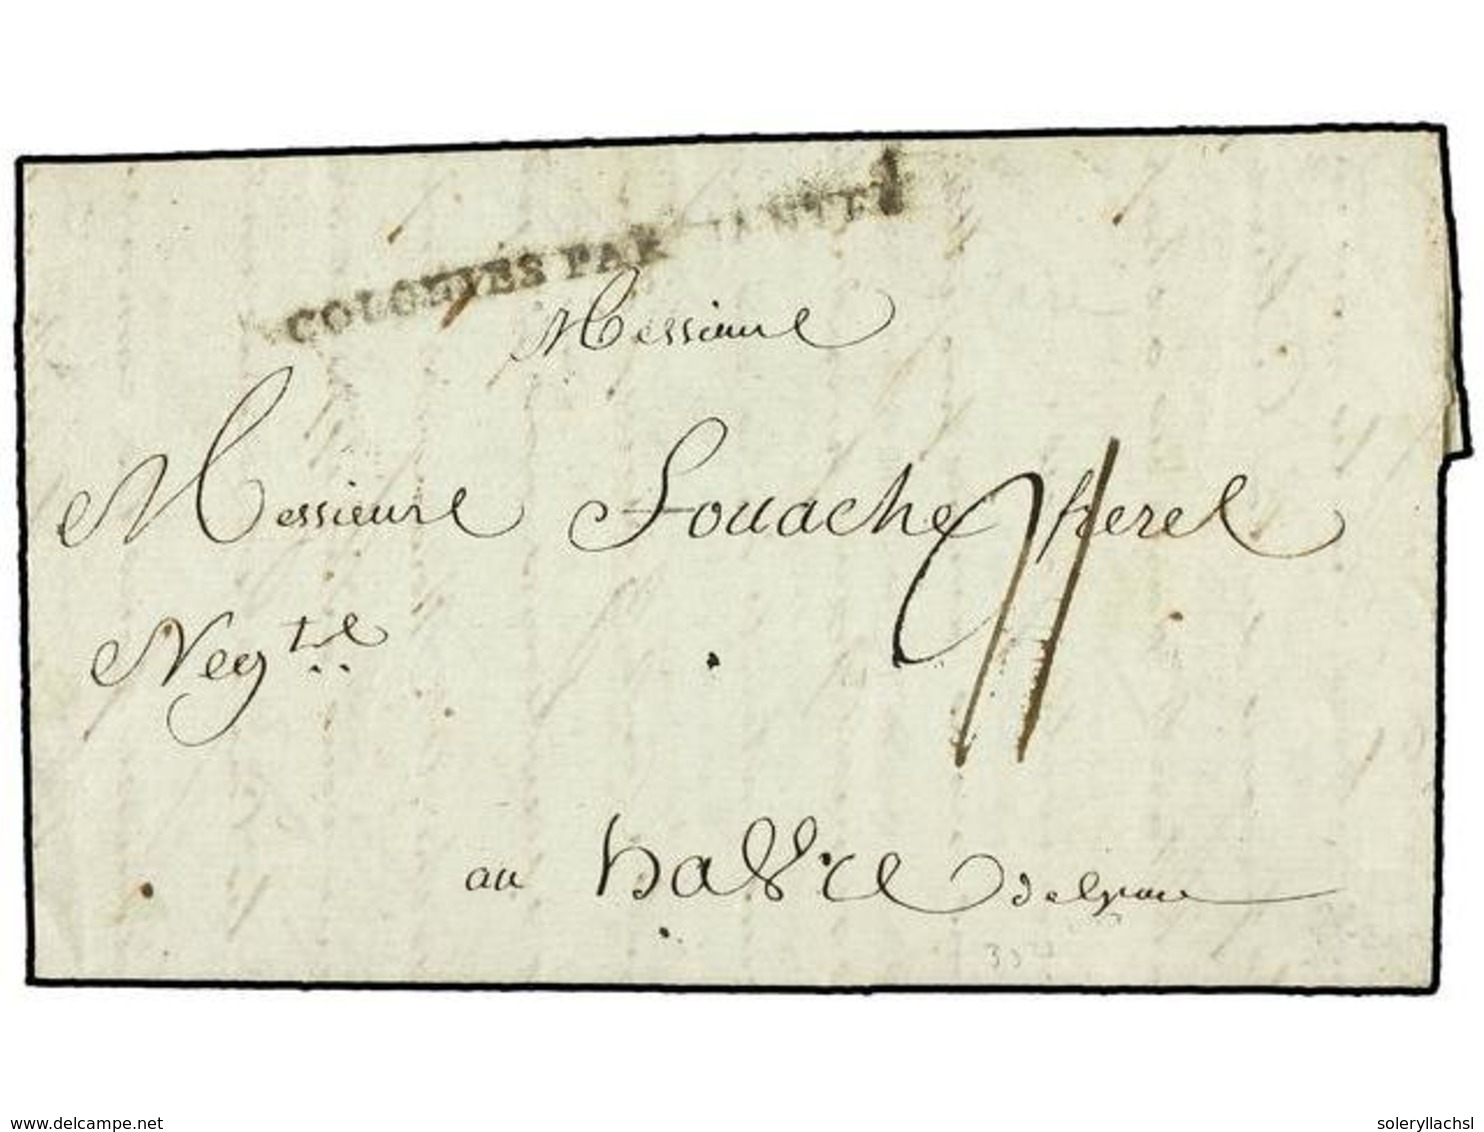 COLONIES PAR NANTES
Messieurs
Messieurs Fouache freres
Negts
au havre de grace
www.delcampe.net
soleryllachsl